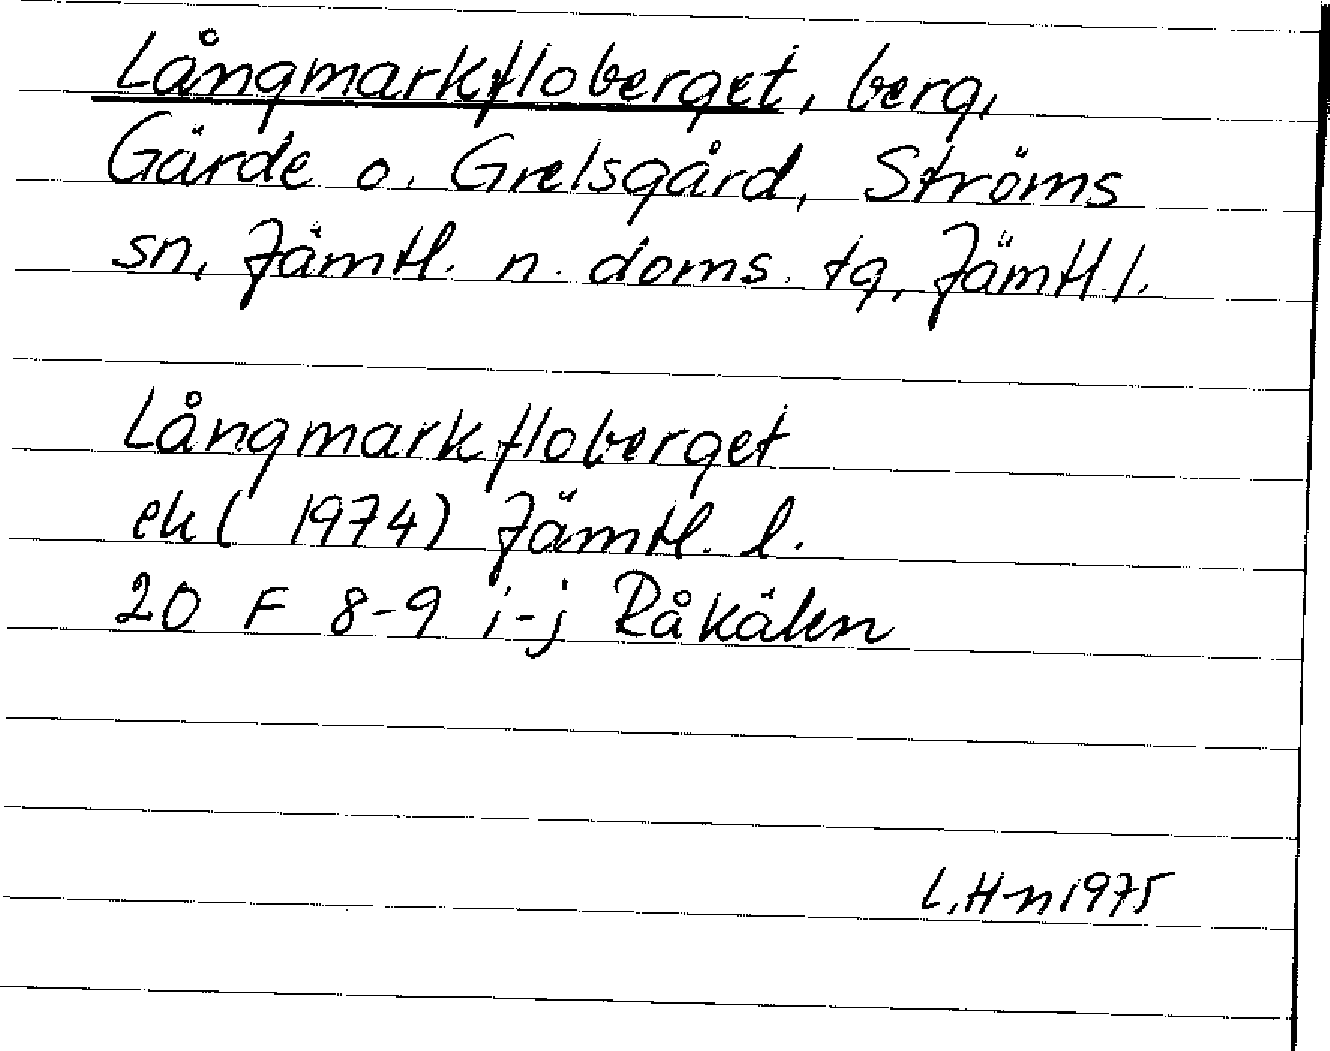 Långmarkfloberget, berg,
Gärde o. Grelsgård, Ströms
sn, Jämtl. n. doms. tg, Jämtl l.
Långmarkfloberget
ek ( 1974) Jämtl. l.
20 F 8-9 i-j Råkälen
L.H-n 1975